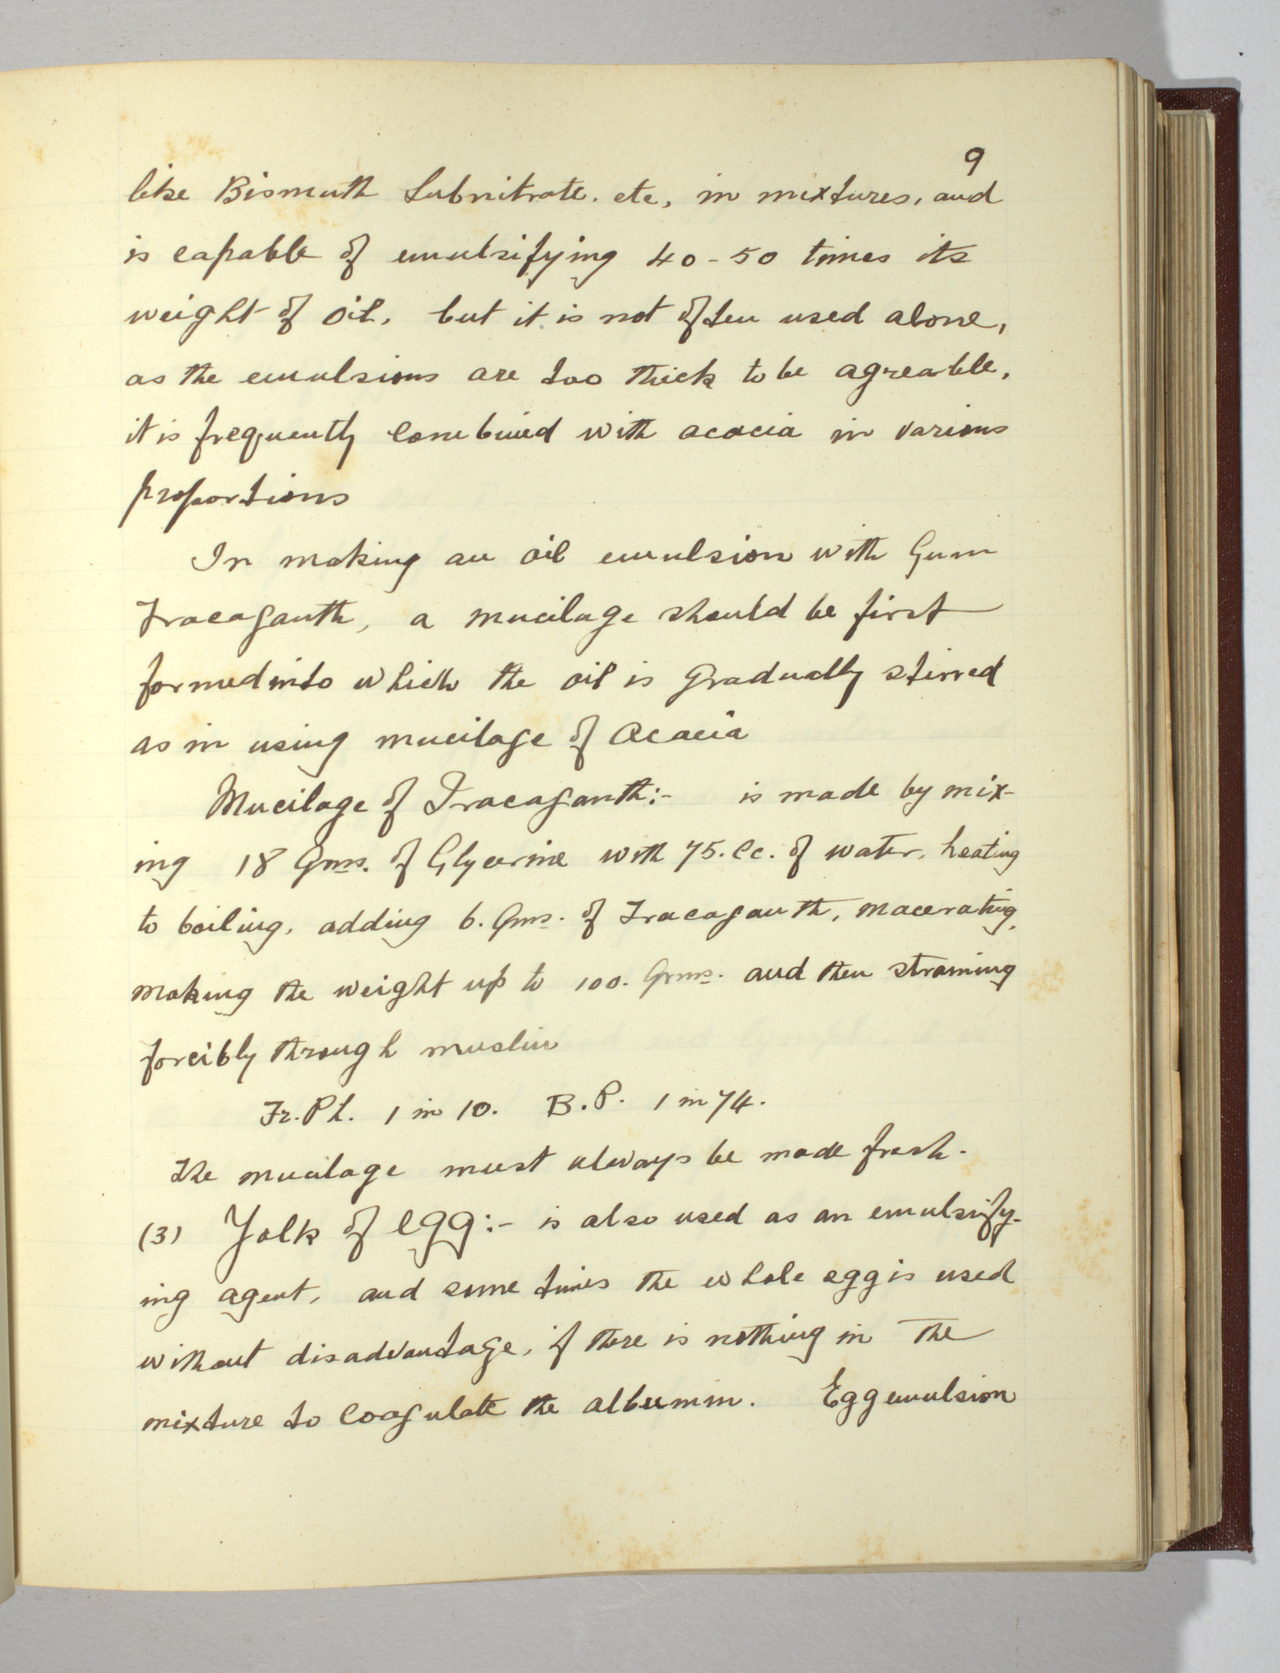 9
like Bismuth Subnitrate. etc, in mixtures, and
is capable of emulsifying 40-50 times its
weight of oil, but it is not often used alone,
as the emulsions are too thick to be agreable,
it is frequently combined with acacia in various
proportions
In making an oil emulsion with Gum
Tracaganth, a mucilage should be first
formed into which the oil is gradually stirred
as in using mucilage of Acacia
Mucilage of Tracaganth:- is made by mix-
ing 18 Gms. of Glycerine with 75. Cc. of water, heating
to boiling, adding 6. Gms. of Tracaganth, macerating,
making the weight up to 100. Grms. and then straining
forcibly through muslin
Fr. Ph. 1 in 10. B.P. 1 in 74.
The mucilage must always be made fresh.
(3) Yolk of egg:- is also used as an emulsify-
ing agent, and some times the whole egg is used
without disadvantage, if there is nothing in the
mixture to coagulate the albumin. Egg emulsion